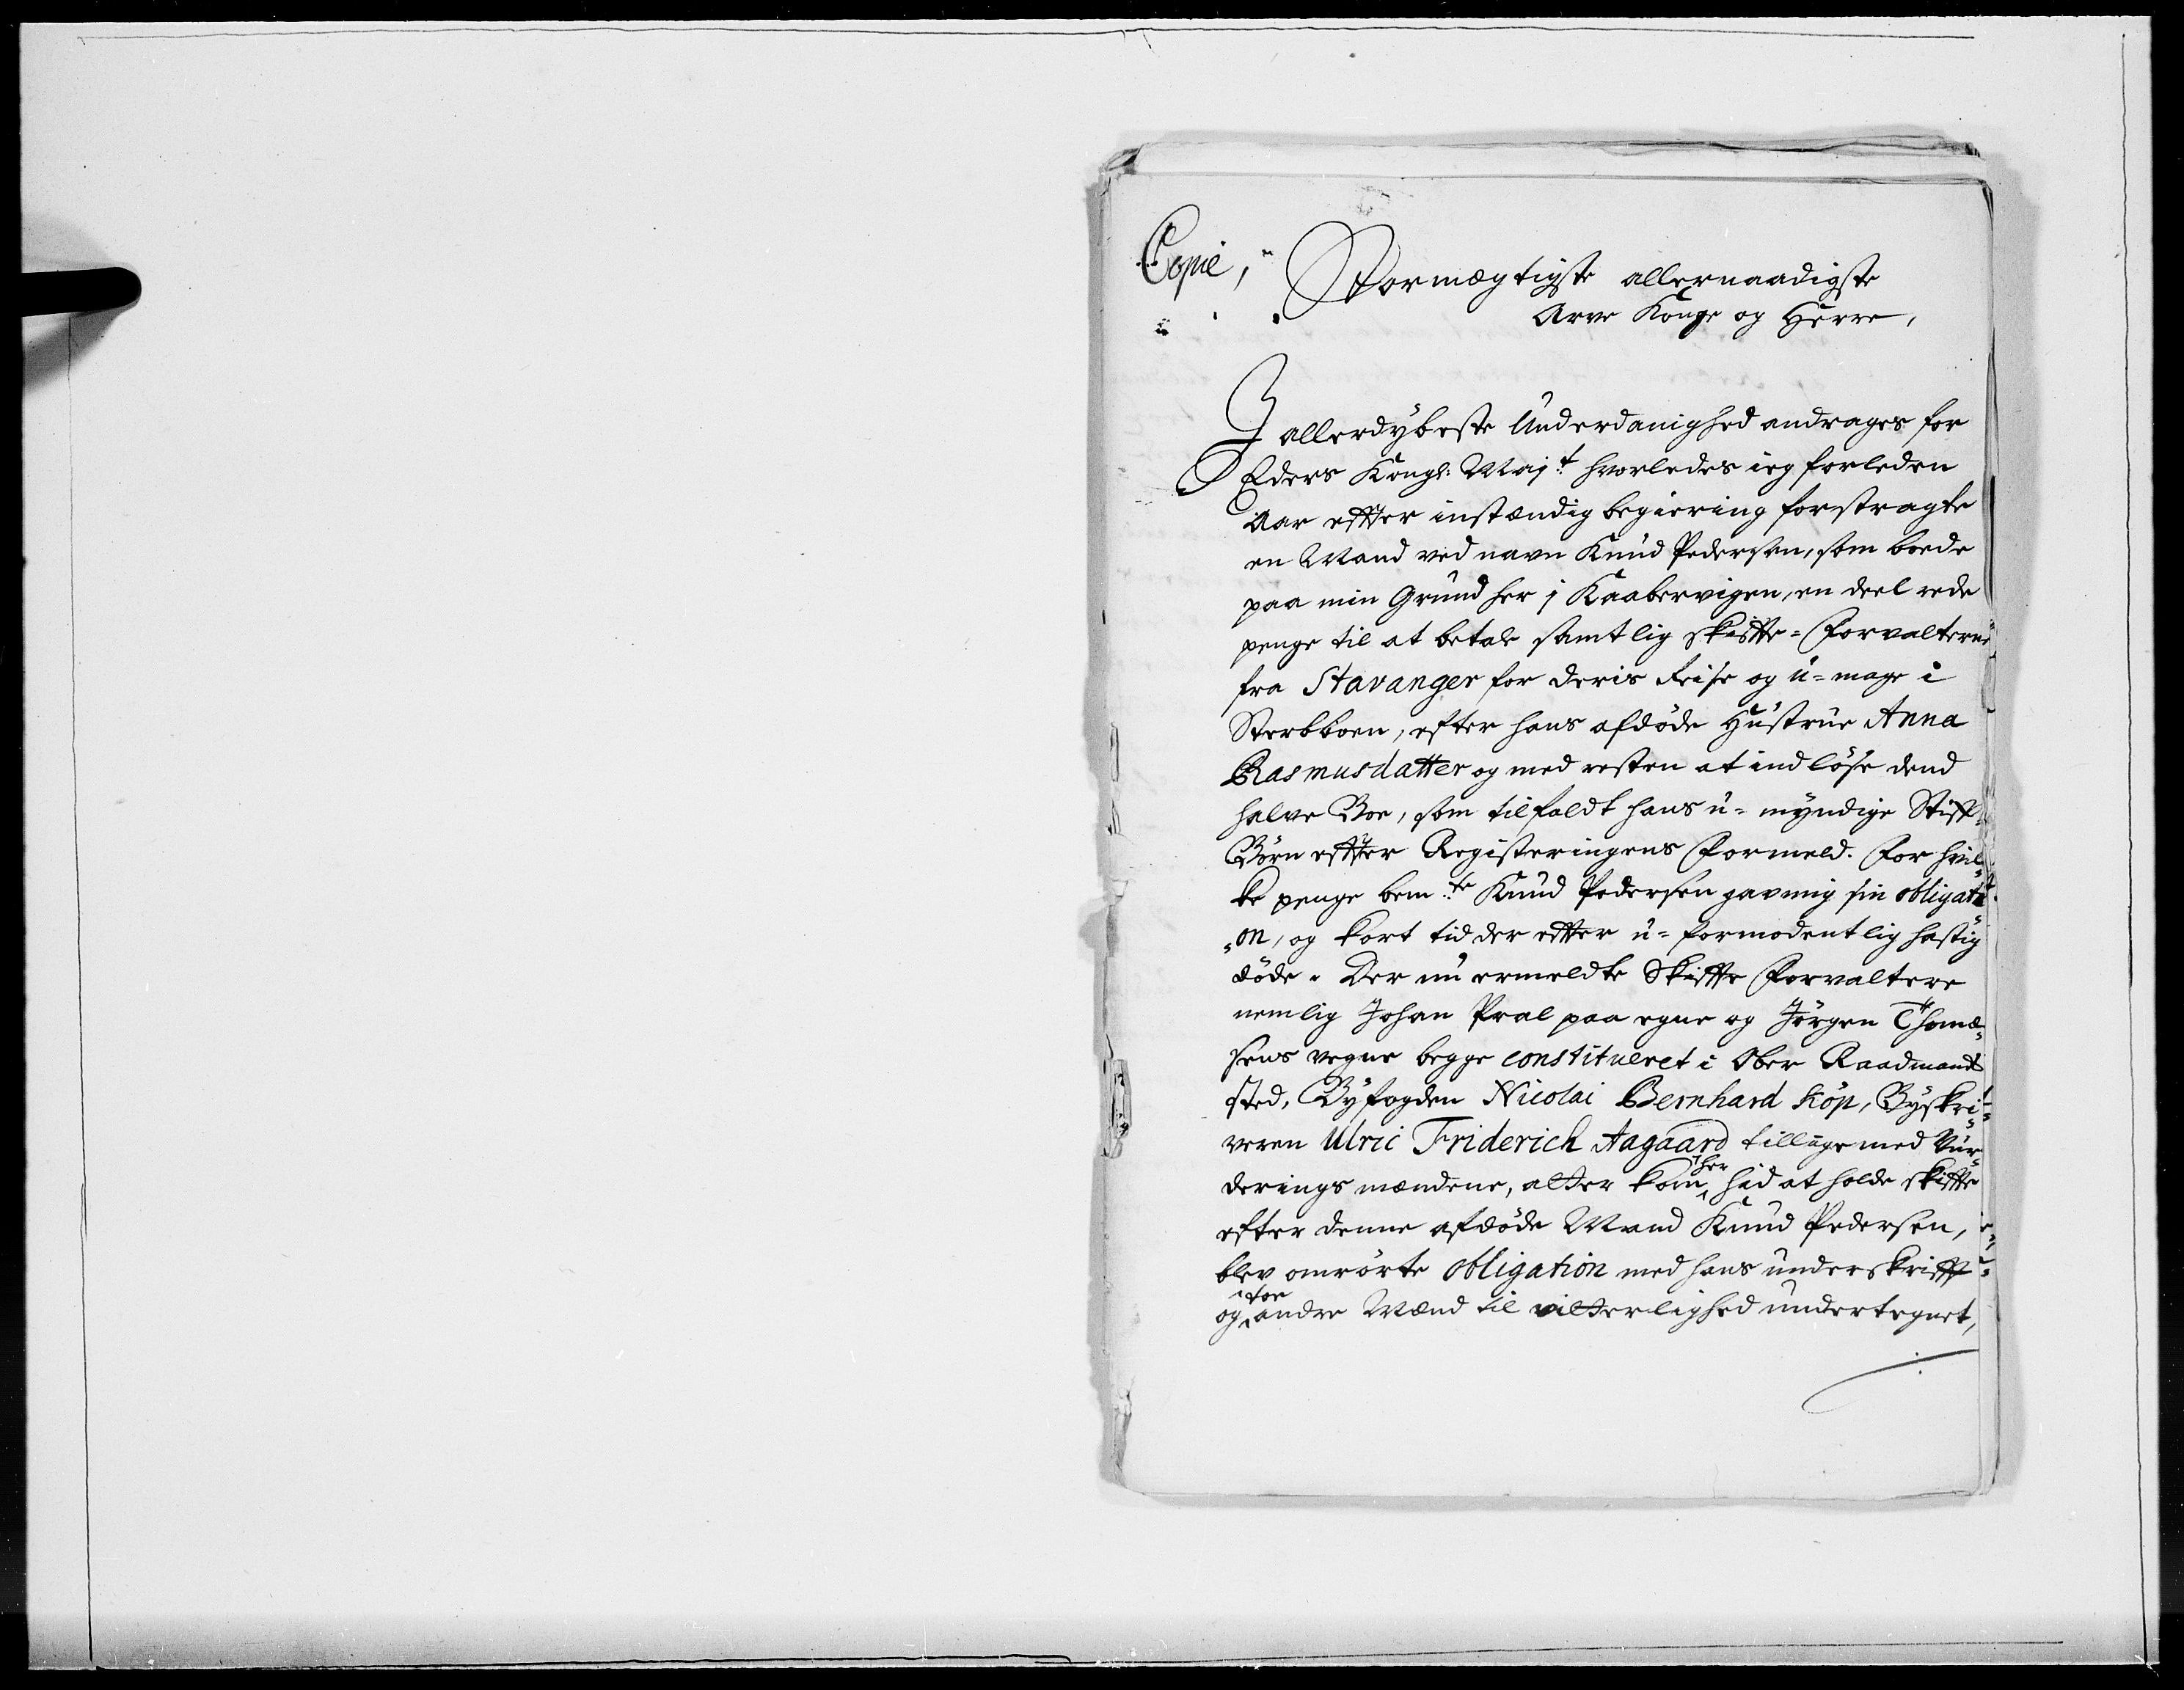 Copie,
Stormægtigste allernaadigste
Arve Konge og Herre,
I allerdybeste Underdanighed andrages for
Eders Kongl: Maj:t hvorledes ieg forleden
Aar effter instændig begiering forstragte
en Mand ved navn Knud Pedersen, som boede
paa min Grund her j Kaabervigen, en deel rede
penge til at betale samtlig skiffte-Forvalterne
fra Stavanger for deris Reise og u-mage i
Sterbboen, efter hans afdøde Hustrue Anna
Rasmusdatter og med resten at indløse dend
halve Boe, som tilfaldt hans u-myndige Stiff-
Børn effter Registeringens Formeld. For hvil-
ke penge bem:te Knud Pedersen gav mig sin obligati-
on, og kort tid der effter u-formodentlig hastig
døde. Der nu ermeldte Skiffte Forvaltere
nemlig Johan Pral paa egne og Jörgen Thomæ-
sens vegne begge constitueret i Ober Raadmands
sted, Byfogden Nicolai Bernhard Köp, Byskri-
veren Ulric Friderich Aagaard tillige med Vur-
derings mændene, atter kom her hid at holde skiffte
efter denne afdøde Mand Knud Pedersen,
blev omrørte obligation med hans underskrifft
og toe andre Mænd til vitterlighed undertegnet,